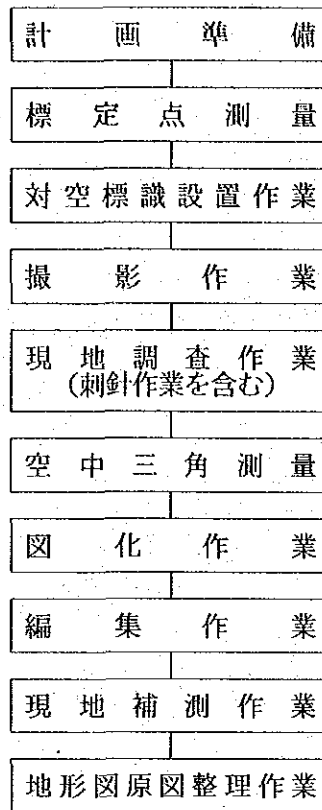 計画準備
標定点測量
対空標識設置作業
撮影作業
現地調査作業
(刺針作業を含む)
空中三角測量
図化作業
編集作業
現地補測作業
地形図原図整理作業